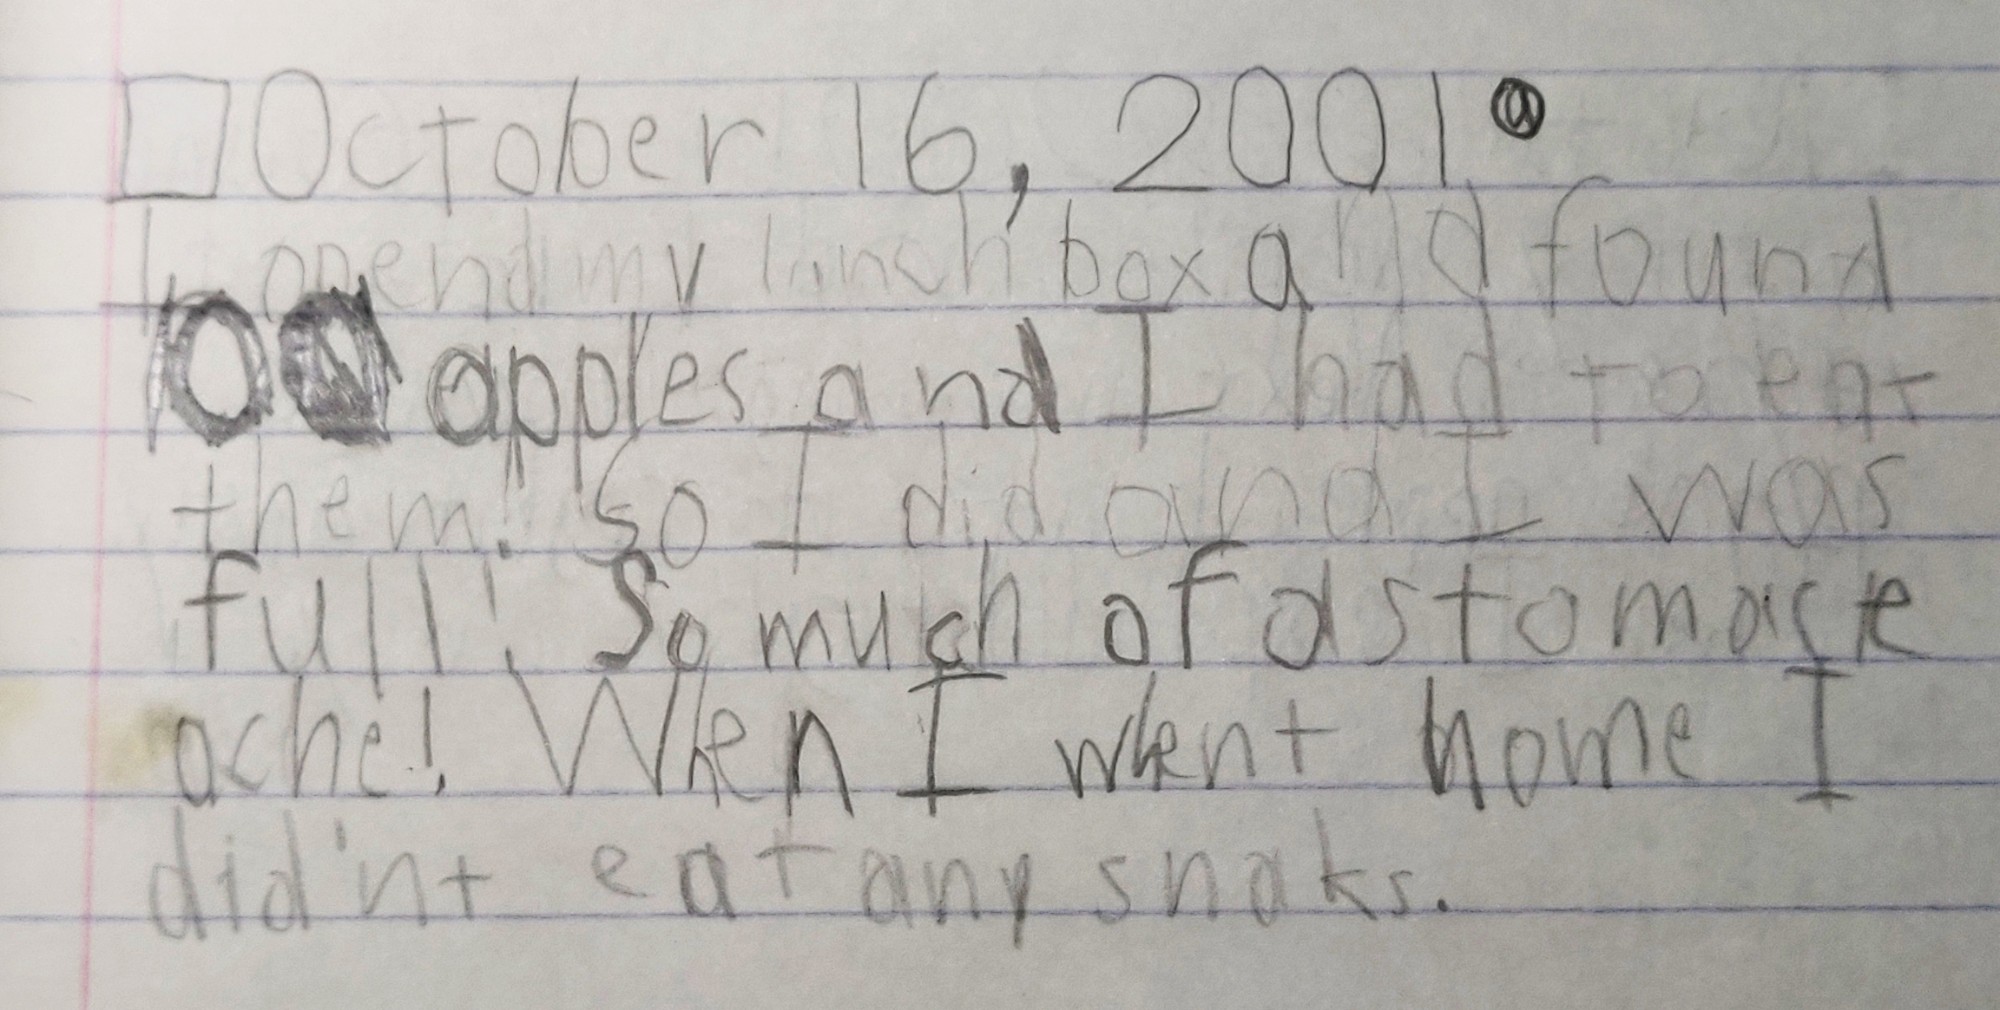 October 16, 2001
I opend my lunch box and found
10 apples and I had to eat
them! So I did and I was
full! So much of a stomack
ache! When I whent home I
did'nt eat any snaks.